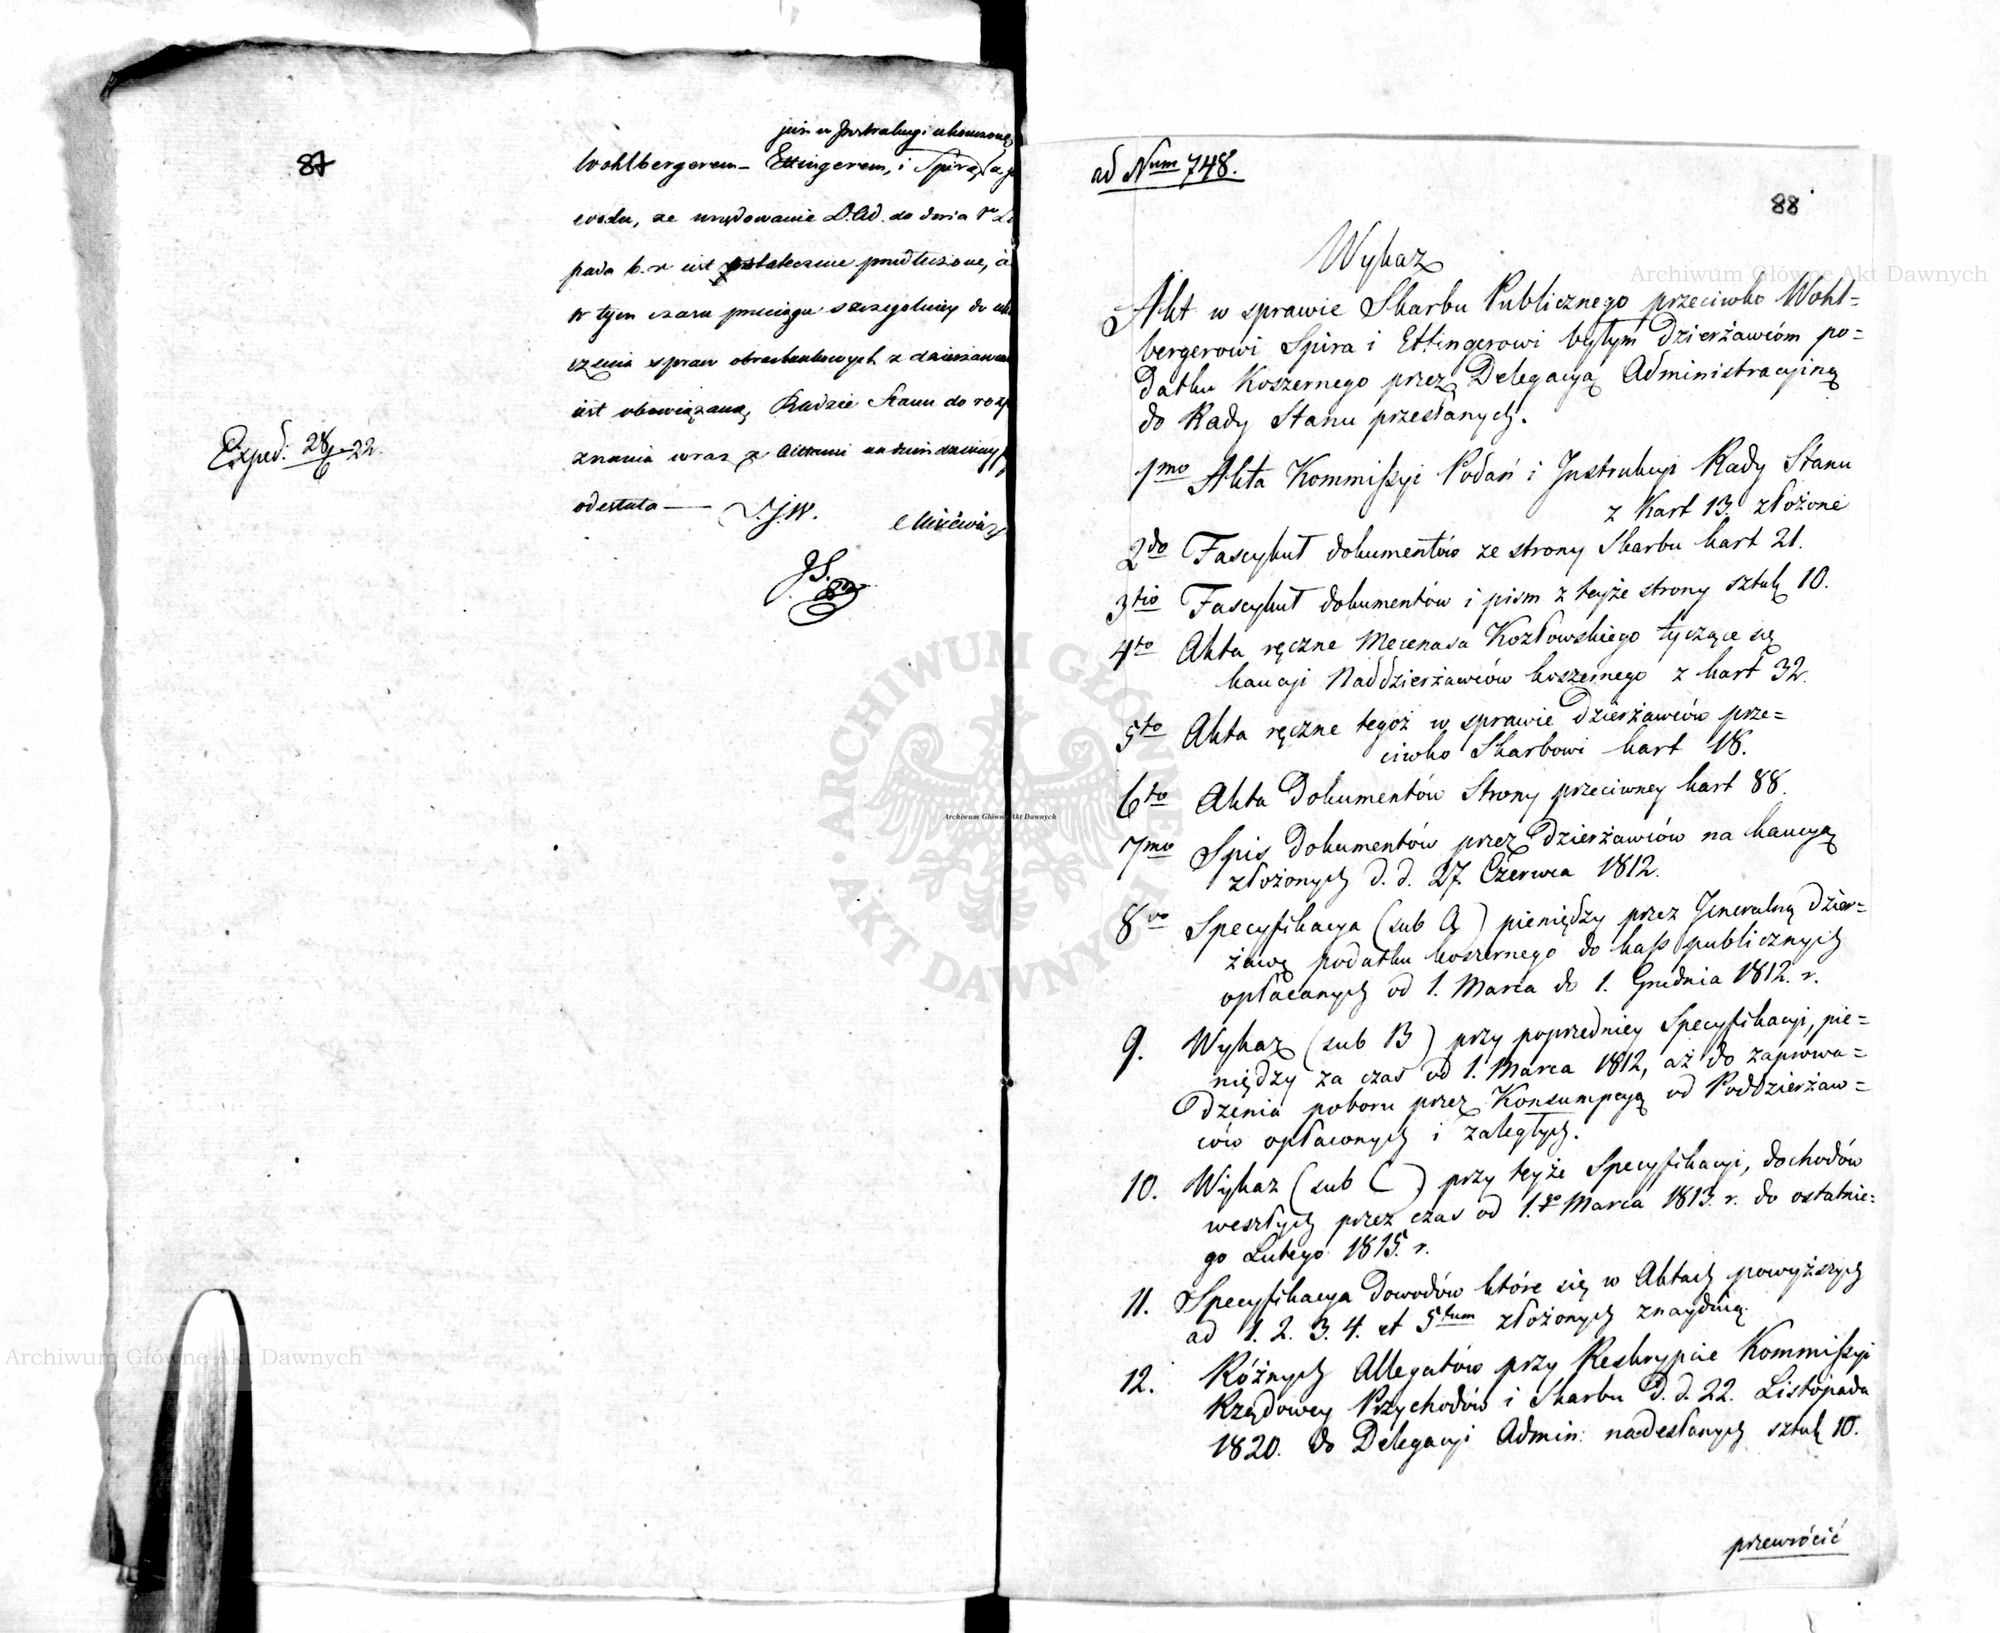 87
już w Instrukcyi ukończoney
Wohlbergerem – Ettingerem, i Spirą, a
wodu, że urzędowanie D. Ad. do dnia 1º Li
pada b. r. iest ostatecznie przedłużone, a
w tym czasu przeciągu szczególniey do
czenia spraw obrachunkowych z dzierżawca
iest obowiązaną, Radzie Stanu do roz
znania wraz z Aktami
odesłała — V. J. W.
Exped: 28/6 22.
ad Num 748.
88
Wykaz
Akt w sprawie Skarbu Publicznego przeciwko Wohl=
bergerowi Spira i Ettingerowi byłym Dzierżawcóm po=
datku Koszernego przez Delegacyą Administracyiną
do Rady Stanu przesłanych.
1mo Akta Kommissyi Podań i Instrukcyi Rady Stanu
z Kart 13. złożone
2do Fascykuł dokumentów ze strony Skarbu kart 21.
3tio Fascykuł dokumentów i pism z teyże strony sztuk 10.
4to Akta ręczne Mecenasa Kozłowskiego tyczące się
kaucyi Naddzierżawców koszernego z kart 32.
5to Akta ręczne tegoż w sprawie Dzierżawców prze=
ciwko Skarbowi kart 18.
6to Akta Dokumentów Strony przeciwney kart 88.
7mo Spis Dokumentów przez Dzierżawców na kaucyą
złożonych d. d. 27. Czerwca 1812.
8vo Specyfikacya (sub A) pieniędzy przez Jeneralną Dzier=
żawę podatku koszernego do kass publicznych
opłacanych od 1. Marca do 1. Grudnia 1812. r.
9. Wykaz (sub B) przy poprzedniey Specyfikacyi, pie=
niędzy za czas od 1. Marca 1812, aż do zaprowa=
dzenia poboru przez Konsumpcyą od Poddzierżaw=
ców opłaconych i zaległych.
10. Wykaz (sub C) przy teyże Specyfikacyi, dochodów
weszłych przez czas od 1.go Marca 1813. r. do ostatnie=
go Lutego 1815. r.
11. Specyfikacya Dowodów które się w Aktach powyższych
ad 1. 2. 3. 4. et 5tum złożonych znayduią.
12. Różnych Allegatów przy Reskrypcie Kommissyi
Rządowey Przychodów i Skarbu D. d. 22. Listopada
1820. do Delegacyi Admin: nadesłanych sztuk 10.
przewrócić
Archiwum Główne Akt Dawnych
Archiwum Główne Akt Dawnych
Archiwum Główne Akt Dawnych
ARCHIWUM GŁÓWNE · AKT DAWNYCH